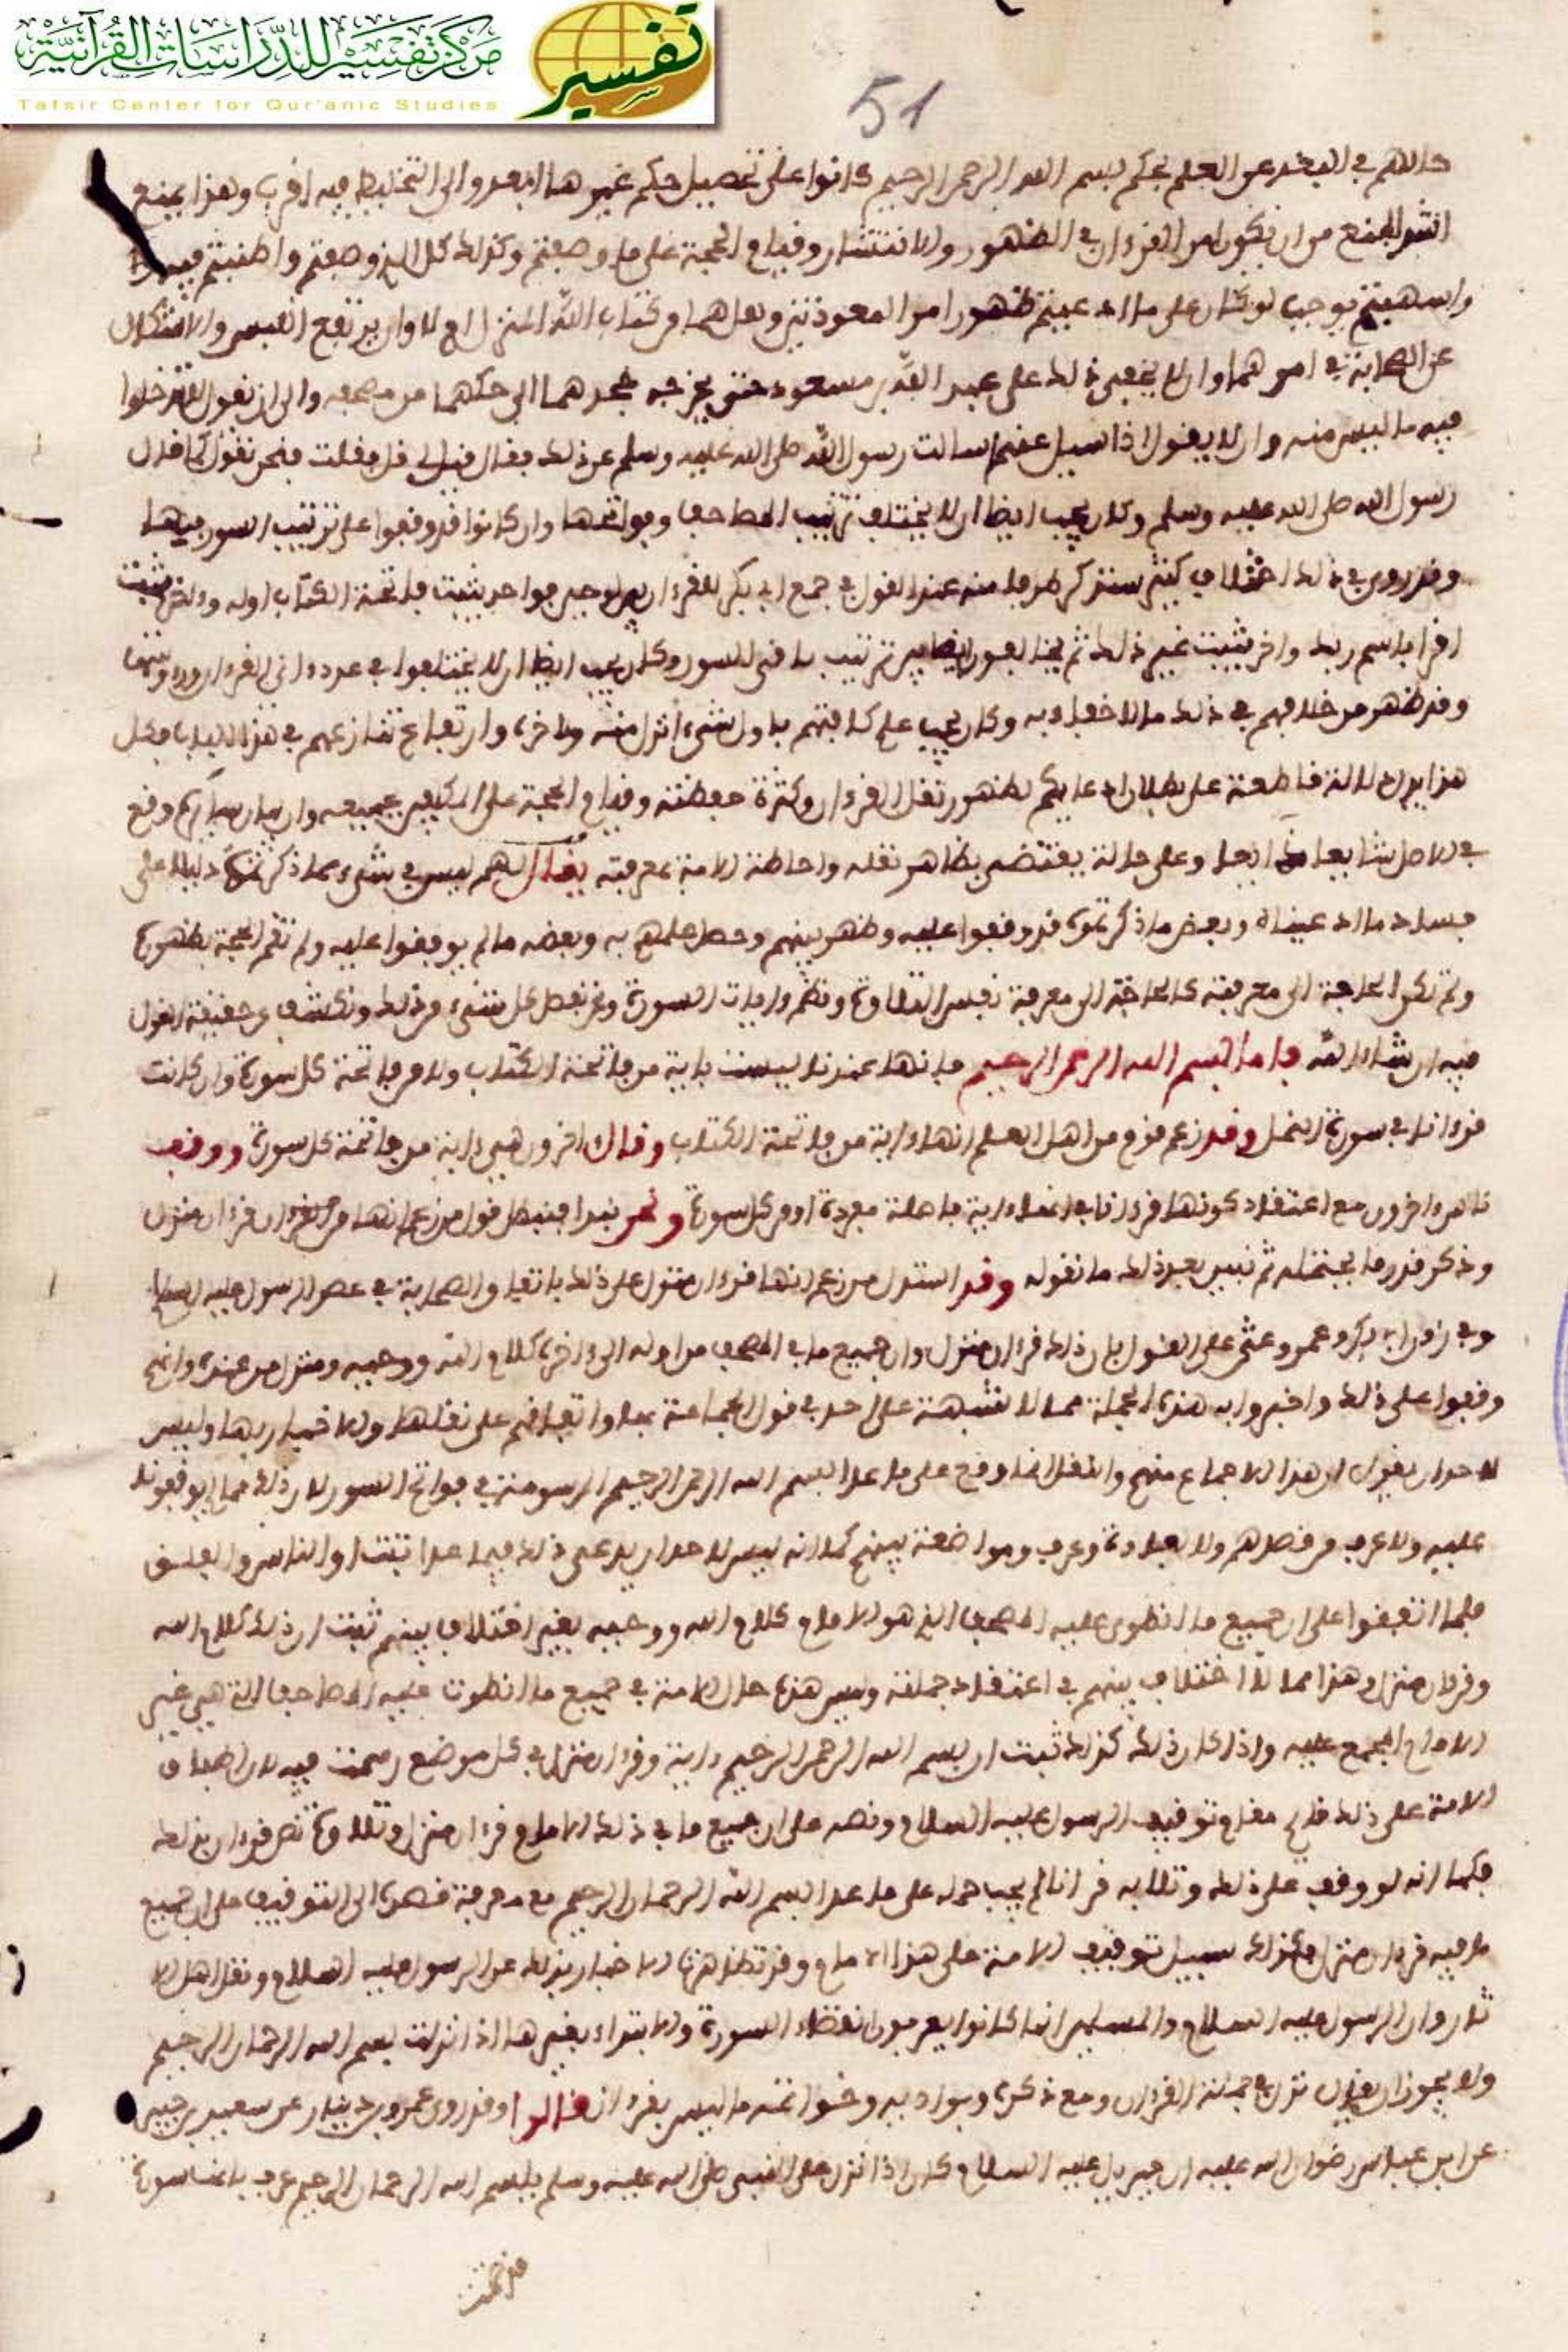 مركز تفسير للدراسات القرآنية
Tafsir Center for Qur'anic Studies
تفسير
51
حالهم في البعد عن العلم بحكم بسم الله الرحمن الرحيم كانوا على تحصيل حكم غيرها ابعد والى التخليط فيه اقرب وهذا يمنع
المنع من ان يكون امر القرءان في الظهور والانتشار وقيام الحجة على ما وصفتم وكذلك كل الذي وصفتم واطنبتم فيه
واسهبتم يوجب لو كان على ما ادعيتم ظهور امر المعوذتين وهل هما من كتاب الله المنزل ام لا وان يرتفع اللبس والاشكال
عن الصحابة في امرهما وان لا يخفى ذلك على عبد الله بن مسعود حتى يخرجه جحدهما الى حكهما من مصحفه والى ان يقول لا تدخلوا
فيه ما ليس منه وان لا يقول اذا سيل عنهما سالت رسول الله صلى الله عليه وسلم عن ذلك فقال قيل لي قل فقلت فنحن نقول كما قال
رسول الله صلى الله عليه وسلم وكان يجب ايضا ان لا يختلف ترتيب المصاحف وفواتحها وان كانوا قد وقفوا على ترتيب السور فيها
وقد روي في ذلك اختلاف كثير سنذكر طرفا منه عند القول في جمع ابي بكر للقرءان بين لوحين فواحد يثبت فاتحة الكتاب اوله وءاخر يثبت
اقرا باسم ربك واخر يثبت غير ذلك ثم يخالفون ايضا بين ترتيب باقي السور وكان يجب ايضا ان لا يختلفوا في عدد ءاي القرءان
وقد ظهر من خلافهم في ذلك ما لا خفاء به وكان يجب علم كافتهم باول شيء انزل منه وءاخره وارتفاع تنازعهم في هذا الباب فكل
هذا يدل دلالة قاطعة على بطلان ادعايكم لظهور نقل القرءان وكثرة حفظته وقيام الحجة على المكلفين بجميعه وان بيان وقع
في الاصل شايعا ذايعا وعلى حالة يقتضي تظاهر نقله واحاطة الامة بمعرفته يقال لهم ليس في شيء مما ذكرتموه دليلا على
فساد ما ادعيناه وبعض ما ذكرتموه قد وقفوا عليه وظهر بينهم وحصل علمهم به وبعضه ما لم يوقفوا عليه ولم تقم الحجة بظهوره
ولم تكن الحاجة الى معرفته كالحاجة الى معرفة نفس التلاوة ونظم ءايات السورة ونحن نفصل كل شيء من ذلك ونكشف عن حقيقة القول
فيه ان شاء الله فاما بسم الله الرحمن الرحيم فانها عندنا ليست باية من فاتحة الكتاب ولا من فاتحة كل سورة وان كانت
قرءانا في سورة النمل وقد زعم قوم من اهل العلم انها ءاية من فاتحة الكتاب وقال اخرون هي ءاية من فاتحة كل سورة ووقف
اخرون مع اعتقاد كونها قرءانا في انها ءاية فاصلة مفردة او من كل سورة ونحن نبدا فنبطل قول من زعم انها من القرءان قرءان منزل
ونذكر قدر ما يحتمله ثم نبين بعد ذلك ما نقوله وقد استدل من زعم انها قرءان منزل على ذلك باتفاق الصحابة في عصر الرسول عليه السلام
وفي زمن ابي بكر وعمر وعثمن على القول بان ذلك قرءان منزل وان جميع ما في المصحف من اوله الى ءاخره كلام الله ووحيه ومنزل من عنده وانهم
وقفوا على ذلك واخبروا به هذه الجملة مما لا شبهة على احد في قول الجماعة بها واتفاقهم على نقلها والاخبار بها وليس
لاحد ان يقول ان هذا الاجماع منهم والنقل انما وقع على ما عدا بسم الله الرحمن الرحيم المرسومة في فواتح السور لان ذلك مما لم يوقفونا
عليه ولا عرف من قصدهم ولا بعادة وعرف ومواضعة بينهم كما انه ليس لاحد ان يدعي ذلك فيما عدا تبت او الناس والفلق
فلما اتفقوا على ان جميع ما انطوى عليه المصحف الذي هو الامام كلام الله ووحيه بغير اختلاف بينهم ثبت ان ذلك كلام الله
وقرءان منزل وهذا مما لا اختلاف بينهم في اعتقاد جملته وليس هذه حال الامة في جميع ما انطوت عليه المصاحف التي هي غير
الامام المجمع عليه واذا كان ذلك كذلك ثبت ان بسم الله الرحمن الرحيم ءاية وقرءان منزل في كل موضع رسمت فيه لان اطباق
الامة على ذلك قايم مقام توقيف الرسول عليه السلام ونصه على ان جميع ما في ذلك الامام قرءان منزل
فكما انه لو وقف على ذلك وتلا به قرءانا لم يجب حمله على ما عدا بسم الله الرحمن الرحيم مع معرفة قصده الى التوقيف على ان جميع
ما فيه قرءان منزل فكذلك سبيل توقيف الامة على هذا الامام وقد تظاهرت الاخبار بذلك عن الرسول عليه السلام ونقل اهل الا
ثار وان الرسول عليه السلام والمسلمين انما كانوا يعرفون انقضاء السورة والابتداء بغيرها اذا انزلت بسم الله الرحمان الرحيم
ولا يجوز ان يقال نزل في جملة القرءان ومع ذكره وبواديه وخواتمه ما ليس بقرءان قالوا وقد روى عمرو بن دينار عن سعيد بن جبير
عن ابن عباس رضوان الله عليه ان جبريل عليه السلام كان اذا نزل على النبي صلى الله عليه وسلم ببسم الله الرحمان الرحيم عرف